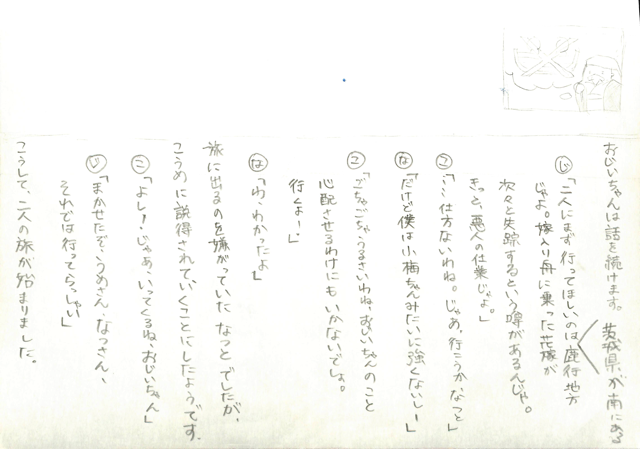 おじいちゃんは話を続けます。
茨城県が南にある
じ「二人にまず行ってほしいのは鹿行地方
じゃよ。嫁入り舟に乗った花嫁が
次々と失踪するという噂があるんじゃ。
きっと、悪人の仕業じゃよ。」
こ「…仕方ないわね。じゃあ、行こうか、なっと」
な「だけど僕は小梅ちゃんみたいに強くないしー」
こ「ごちゃごちゃうるさいわね、おじいちゃんのこと
心配させるわけにもいかないでしょ。
行くよー!」
な「わ、わかったよ」
旅に出るのを嫌がっていたなっとでしたが、
こうめに説得されていくことにしたようです。
こ「よし!じゃあ、いってくるね、おじいちゃん」
じ「まかせたぞ、うめさん、なっさん、
それでは行ってらっしゃい」
こうして、二人の旅が始まりました。